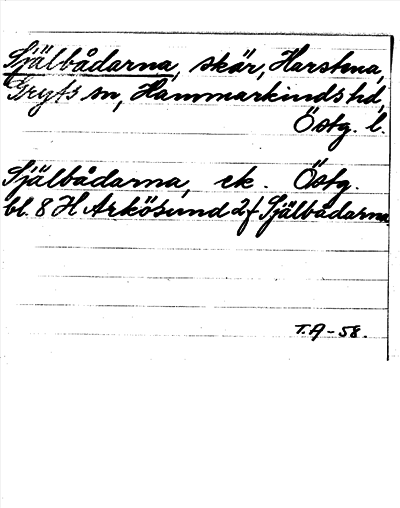 Själbådarna, skär, Harstena,
Gryts sn, Hammarkinds hd,
Östg. l.
Själbådarna, ek. Östg.
bl. 8 H Arkösund 2f Själbådarna.
T.A-58.